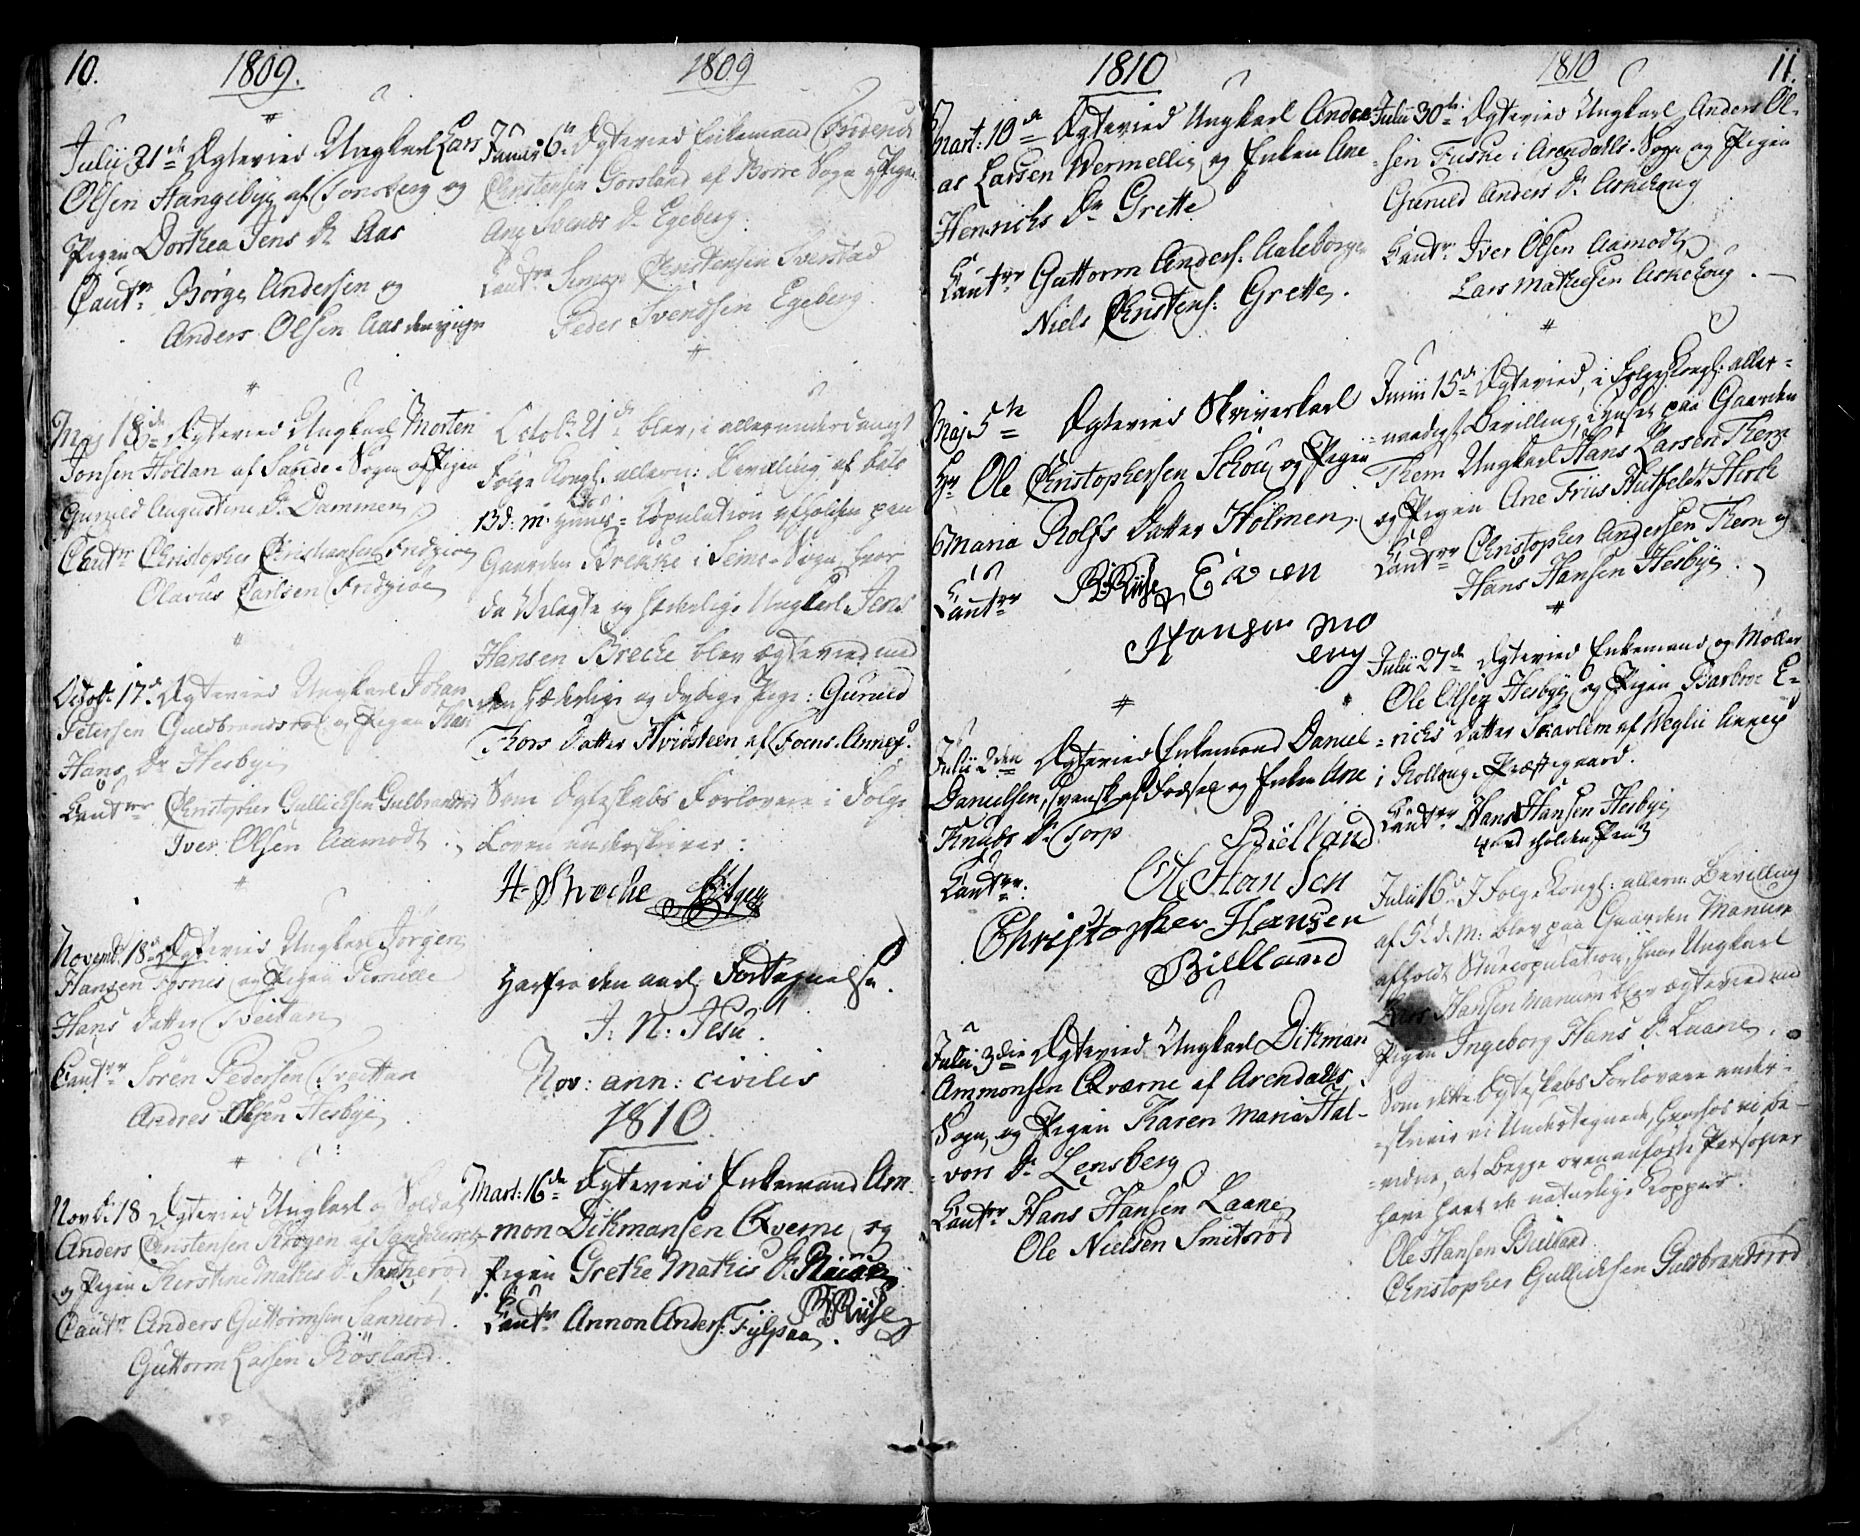 10.
1809.
Julii 21de Ægteviet Ungkarl Lars
Olsen Hangebye af Tonsberg og
Pigen Dorthea Jens D. Aas
Cautr Børge Andersen og
Anders Olsen Aas
Maj 18de Ægteviet Ungkarl Morten
Jonsen Holtan af Sande Sogn og Pigen
Gunild Augustini D. Dammen
Cautrr Christopher Christiansen Fridgioe
Olavus Carlsen Fridgioe
Octobr 17de Ægteviet Ungkarl Johan
Petersen Guldbrandsrød og Pigen
Hans Dr Hesbye
Cautrr Christopher Gullichsen Gulbrandsrød
Iver Olsen Aamodt
Novembr 18de Ægteviet Ungkarl Jørgen
Hansen Fossnes og Pigen Pernille
Hans Datter Tveitan
Cautrr Sören Pedersen Tveittan
Andres Olsen Hesbye
Novbr 18 Ægteviet Ungkarl og Soldat
Anders Christensen Krogen af
og Pigen Kirstine Mathis D. Sannerød
Cautrr Anders Guttormsen Sannerød.
Guttorm Larsen Røsland.
1809
Ægteviet Enkemand
Christensen Gorsland af Borre Sogn og Pigen
Ane Svends D. Egeberg
Cautrr Simon Christensen Sverstad
Peder Svendsen Egeberg
Octob. 21de blev, i allerunderdanigst
Følge Kongl. allern: Bevilling af dato
13 d: m: Huus-Copulation afholden paa
Gaarden Brekke i Sems-Sogn, hvor
da Velagte og hæderlige Ungkarl Jens
Hansen Breche blev ægteviet med
den hæderlige og dydige Pige: Gunild
Thors Datter Hvidsteen af Foens Annex.
Som Ægteskabs Forlovere i Følge
Loven underskriver:
H. Breche
Herfra den aarl. Fortegnelse.
I: N: Jesu.
Nov: ann: civilis
1810.
Mart: 16de Ægteviet Enkemand Am-
mon Dikmansen Qverne og
Pigen Grethe Mathis D.
Cautrr Ammon Anders: Fylpaa. B: Riise
1810
Mart: 10de Ægteviet Ungkarl Andre-
as Larsen Wermellie og Enken Ane
Henrichs Dr Grette
Cautrr Guttorm Anders: Aaleborge
Niels Christens: Grette.
Maj 5te Ægteviet Skriverkarl
Hr Ole Christophersen Schou og Pigen
Maria Rolfs Datter Holmen.
Cautrr B: Riise Even
Hansen Mo
eng
Julii 2den Ægteviet Enkemand Daniel
Danielsen, Svensk af Fødsel og Enken Ane
Knuds D. Torp
Cautrr. Bielland
O Hansen
Christopher Hansen
Bielland
Julii 3die Ægteviet Ungkarl Dikman
Ammonsen Qværne af Arendalls
Sogn, og Pigen Karen Maria Hal-
vors D. Lensberg
Cautrr Hans Hansen Laane
Ole Nielsen Smitsrød
1810
11.
Julii 30te Ægteviet Ungkarl Anders Ol-
sen Fuske i Arendahls Sogn og Pigen
Gunild Anders D. Askehoug
Cautr. Iver Olsen Aamodt
Lars Mathesen Askehoug.
Junii 15de Ægteviet, i Følge Kongl: aller-
naadigst Bevilling, i Huset paa Gaarden
Them Ungkarl Hans Larsen Them
og Pigen Ane Friis Hutfeldt Hiort
Cautrr Christopher Andersen Them og
Hans Hansen Hesbye.
Julii 27de Ægteviet Enkemand og Møller
Ole Olsen Hesbye og Pigen Barbroe E-
richs Datter Skavlem af Weglie Annex
i Rollouge Præstegaard.
Cautrr Hans Hansen Hesbye
med iholden Pend
Julii 16de I Følge Kongl: allern: Bevilling
af 5te d. M: blev paa Gaarden Manum
afholdt Stuecopulation, hvor Ungkarl
Lars Hansen Manum blev ægteviet med
Pigen Ingeborg Hans D. Laane.
Som dette Ægteskabs Forlovere under-
skriver vi Undertegnede, hvorhos vi be-
vidne, at begge ovenanførte Personer
have havt de naturlige Kopper.
Ole Hansen Bielland
Christopher Gullichsen Gulbrandsrød